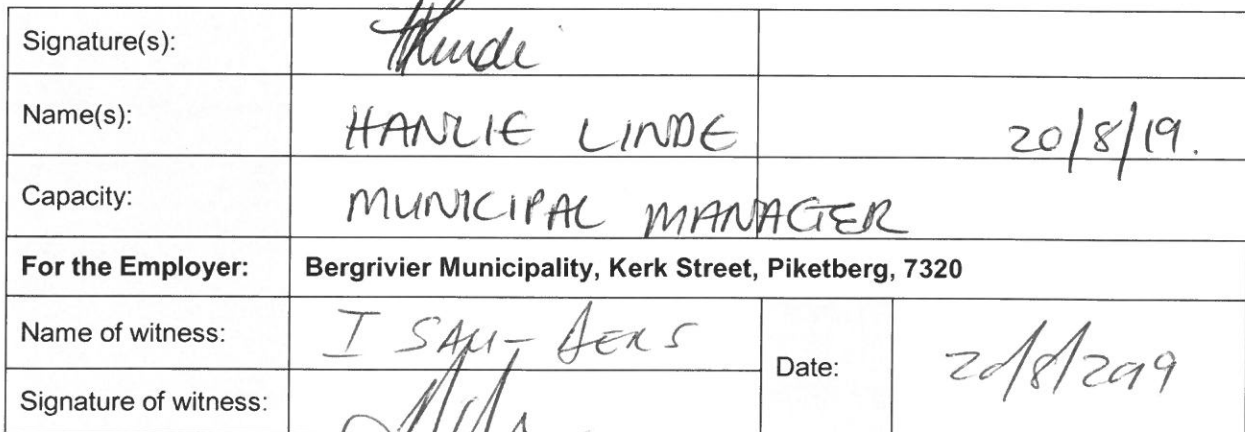 Signature(s):
Name(s): HANLIE LINDE 20/8/19.
Capacity: MUNICIPAL MANAGER
For the Employer: Bergrivier Municipality, Kerk Street, Piketberg, 7320
Name of witness: I
Date: 20/8/2019
Signature of witness: